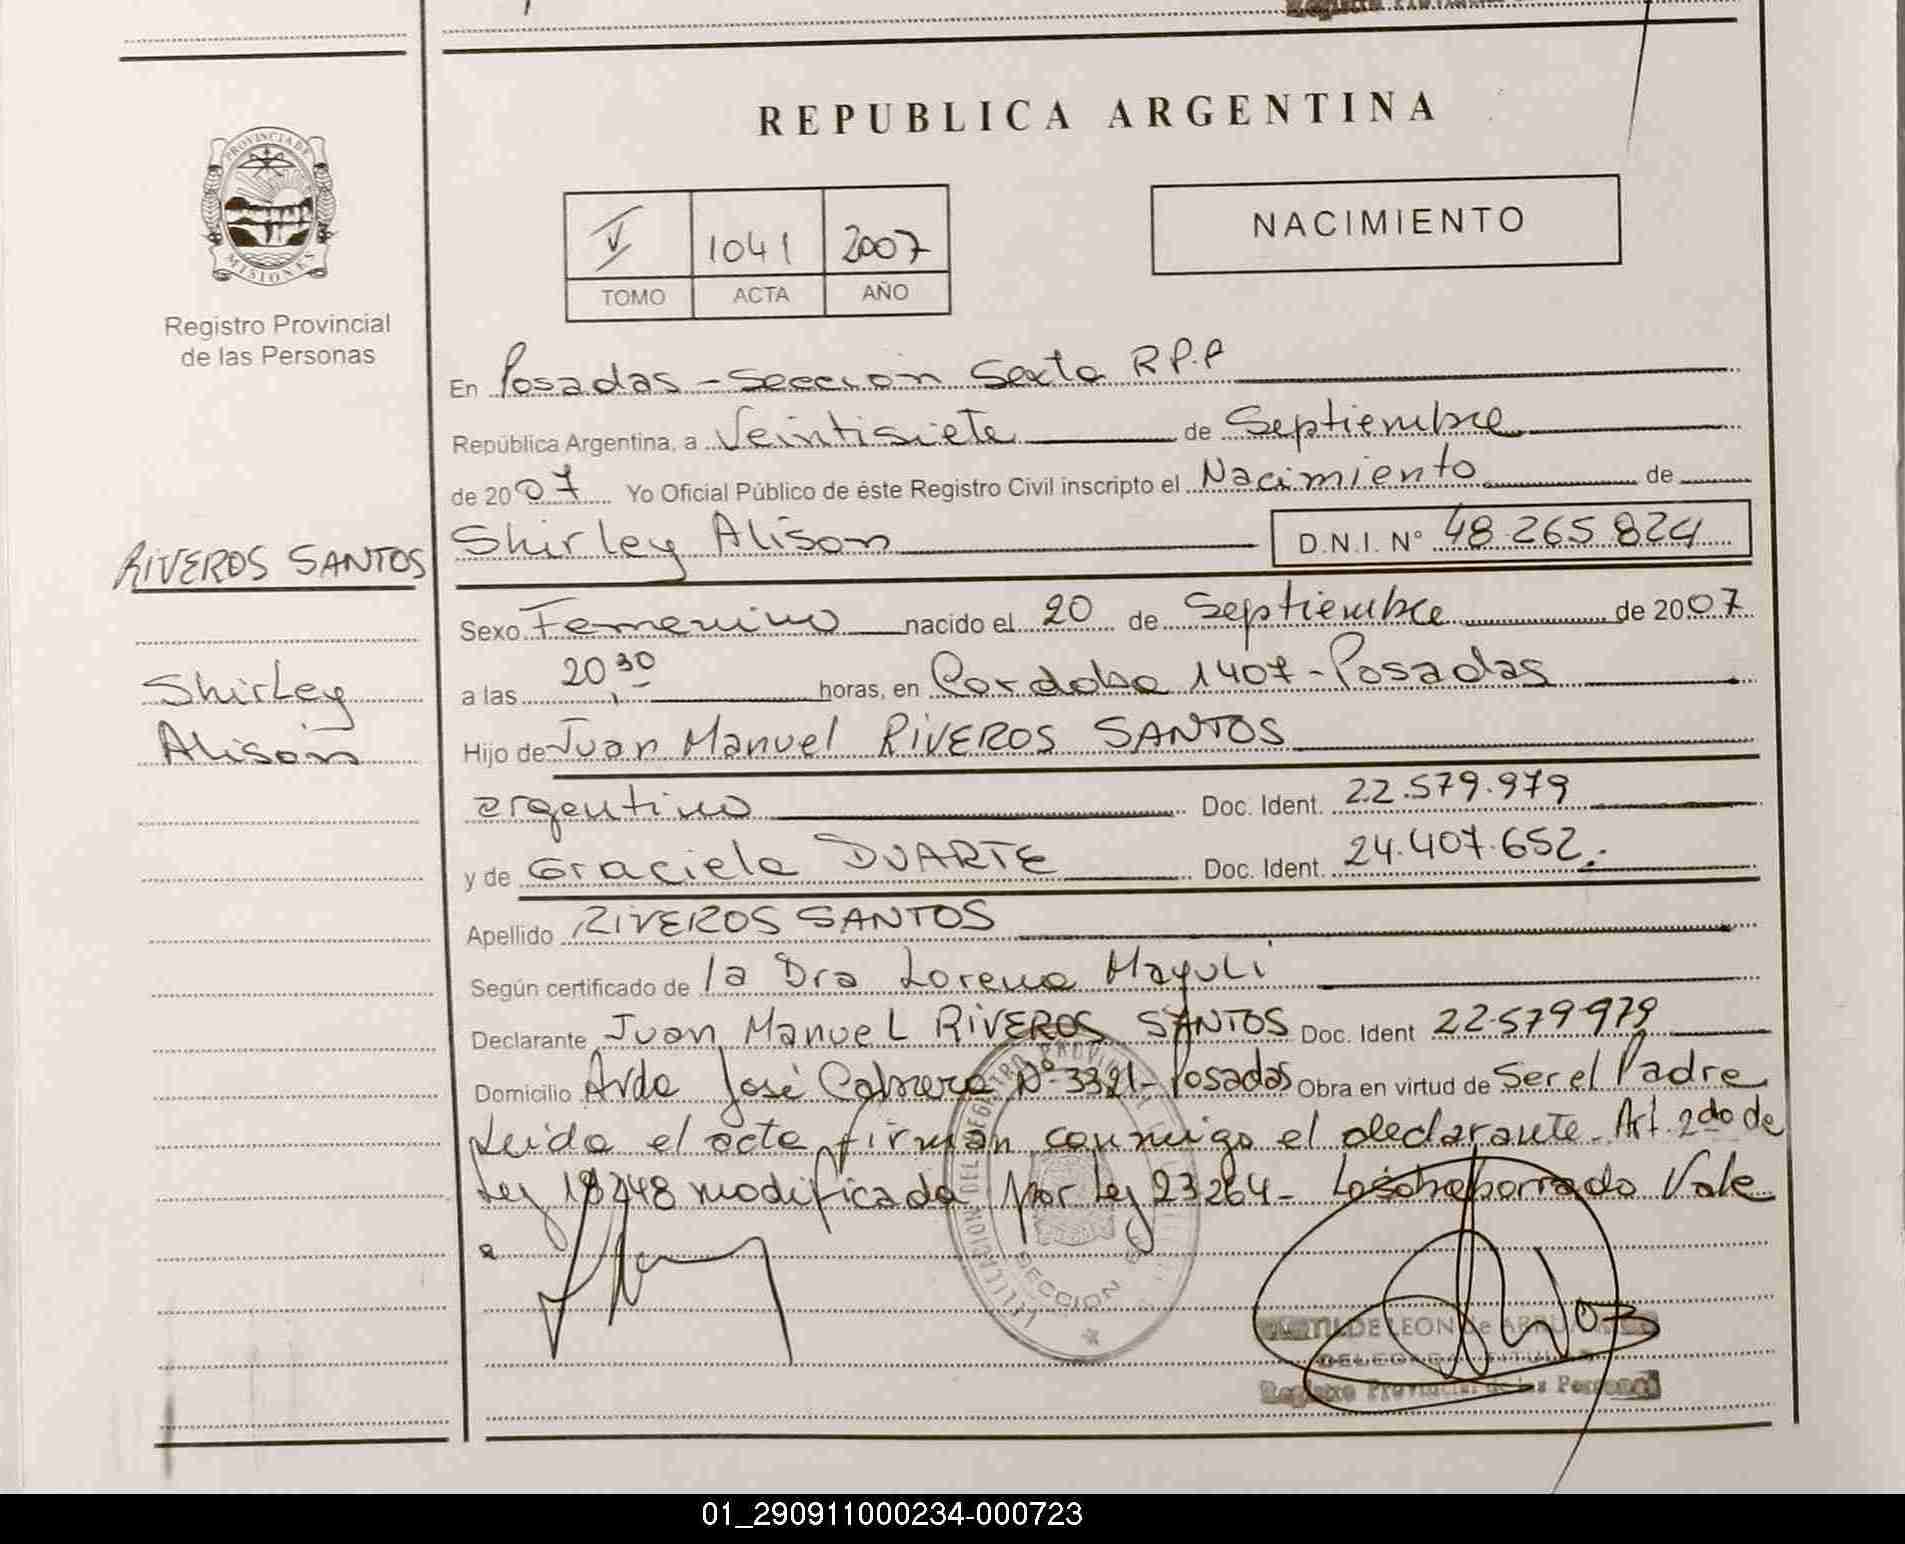 REPUBLICA ARGENTINA
PROVINCIA DE
MISIONES
Registro Provincial
de las Personas
V 1041 2007
TOMO ACTA AÑO
NACIMIENTO
En Posadas - Seccion Sexta R.P.P
República Argentina, a Veintisiete de Septiembre
de 2007 Yo Oficial Público de éste Registro Civil inscripto el Nacimiento de
Shirley Alison D.N.I. N° 48.265.824
RIVEROS SANTOS
Shirley
Alison
Sexo Femenino nacido el 20 de Septiembre de 2007
a las 20,30 horas, en Cordoba 1407 - Posadas
Hijo de Juan Manuel RIVEROS SANTOS
argentino Doc. Ident. 22.579.979
y de Graciela DUARTE Doc. Ident. 24.407.652.-
Apellido RIVEROS SANTOS
Según certificado de la Dra Lorena
Declarante Juan Manuel RIVEROS SANTOS Doc. Ident 22.579.979
Domicilio Avda José Cabrera Nº 3321 - Posadas Obra en virtud de Ser el Padre
Leida el acta firman conmigo el declarante. Art. 2do de
Ley 18248 modificada por Ley 23264 - Vale
SECCION
LEON de
Registro Provincial de las Personas
01_290911000234-000723